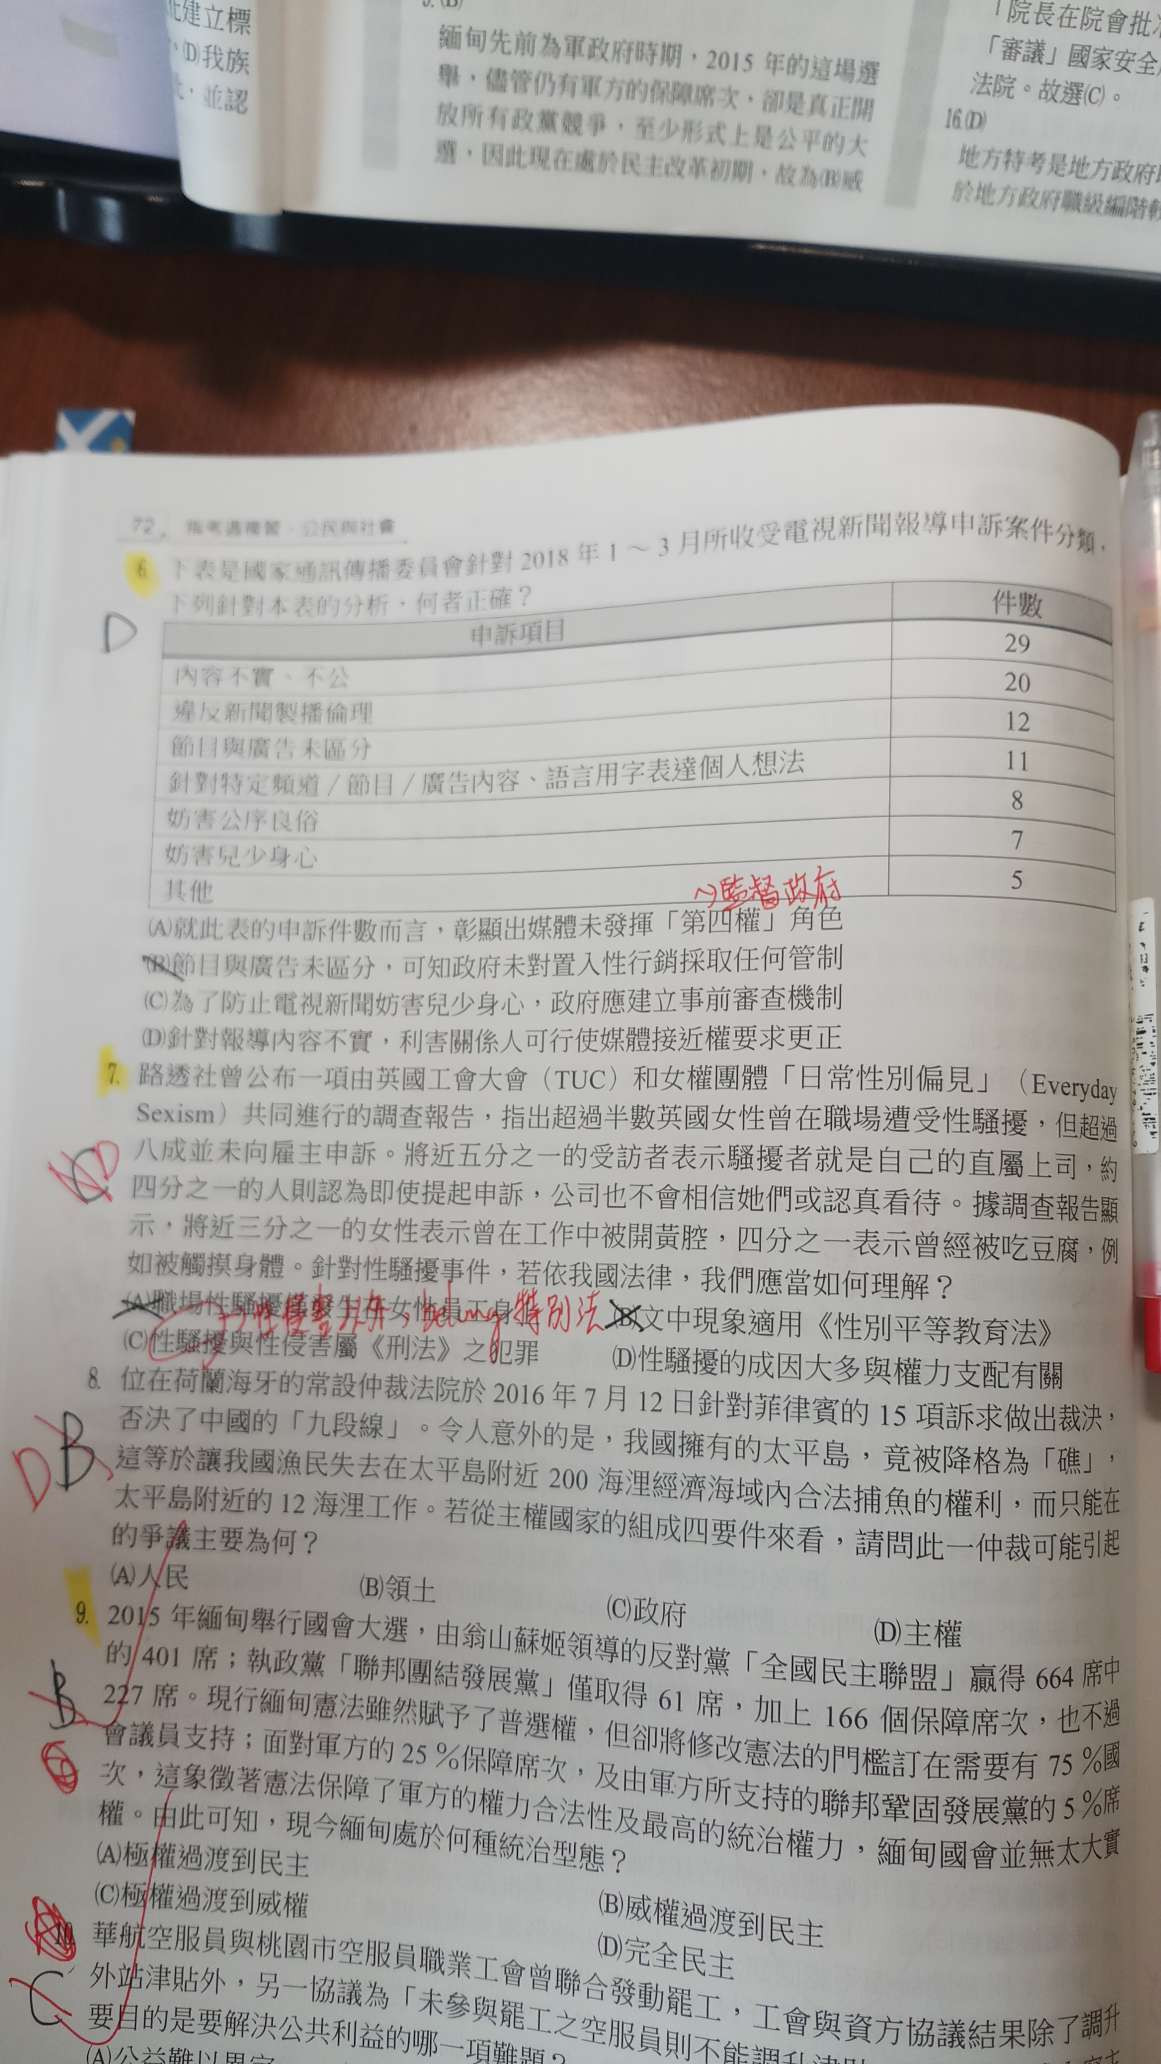 化建立標
。(D)我族
比,並認
5.(B)
緬甸先前為軍政府時期,2015 年的這場選
舉,儘管仍有軍方的保障席次,卻是真正開
放所有政黨競爭,至少形式上是公平的大
選,因此現在處於民主改革初期,故為(B)威
「院長在院會批准
「審議」國家安全
法院。故選(C)。
16.(D)
地方特考是地方政府
於地方政府職級編階較
72 指考週複習.公民與社會
6. 下表是國家通訊傳播委員會針對 2018 年 1 ~ 3 月所收受電視新聞報導申訴案件分類,
下列針對本表的分析,何者正確?
D
申訴項目 件數
內容不實、不公 29
違反新聞製播倫理 20
節目與廣告未區分 12
針對特定頻道/節目/廣告內容、語言用字表達個人想法 11
妨害公序良俗 8
妨害兒少身心 7
其他 5
~)監督政府
(A)就此表的申訴件數而言,彰顯出媒體未發揮「第四權」角色
(B)節目與廣告未區分,可知政府未對置入性行銷採取任何管制
(C)為了防止電視新聞妨害兒少身心,政府應建立事前審查機制
(D)針對報導內容不實,利害關係人可行使媒體接近權要求更正
7. 路透社曾公布一項由英國工會大會(TUC)和女權團體「日常性別偏見」(Everyday
Sexism)共同進行的調查報告,指出超過半數英國女性曾在職場遭受性騷擾,但超過
八成並未向雇主申訴。將近五分之一的受訪者表示騷擾者就是自己的直屬上司,約
四分之一的人則認為即使提起申訴,公司也不會相信她們或認真看待。據調查報告顯
示,將近三分之一的女性表示曾在工作中被開黃腔,四分之一表示曾經被吃豆腐,例
如被觸摸身體。針對性騷擾事件,若依我國法律,我們應當如何理解?
D
(A)職場性騷擾僅發生在女性員工身 (B)文中現象適用《性別平等教育法》
特別法
(C)性騷擾與性侵害屬《刑法》之犯罪 (D)性騷擾的成因大多與權力支配有關
8. 位在荷蘭海牙的常設仲裁法院於 2016 年 7 月 12 日針對菲律賓的 15 項訴求做出裁決,
否決了中國的「九段線」。令人意外的是,我國擁有的太平島,竟被降格為「礁」,
D B
這等於讓我國漁民失去在太平島附近 200 海浬經濟海域內合法捕魚的權利,而只能在
太平島附近的 12 海浬工作。若從主權國家的組成四要件來看,請問此一仲裁可能引起
的爭議主要為何?
(A)人民 (B)領土 (C)政府 (D)主權
9. 2015 年緬甸舉行國會大選,由翁山蘇姬領導的反對黨「全國民主聯盟」贏得 664 席中
的 401 席;執政黨「聯邦團結發展黨」僅取得 61 席,加上 166 個保障席次,也不過
B
227 席。現行緬甸憲法雖然賦予了普選權,但卻將修改憲法的門檻訂在需要有 75 %國
會議員支持;面對軍方的 25 %保障席次,及由軍方所支持的聯邦鞏固發展黨的 5 %席
次,這象徵著憲法保障了軍方的權力合法性及最高的統治權力,緬甸國會並無太大實
權。由此可知,現今緬甸處於何種統治型態?
(A)極權過渡到民主 (B)威權過渡到民主
(C)極權過渡到威權 (D)完全民主
10. 華航空服員與桃園市空服員職業工會曾聯合發動罷工,工會與資方協議結果除了調升
C
外站津貼外,另一協議為「未參與罷工之空服員則不能調升津貼
要目的是要解決公共利益的哪一項難題?